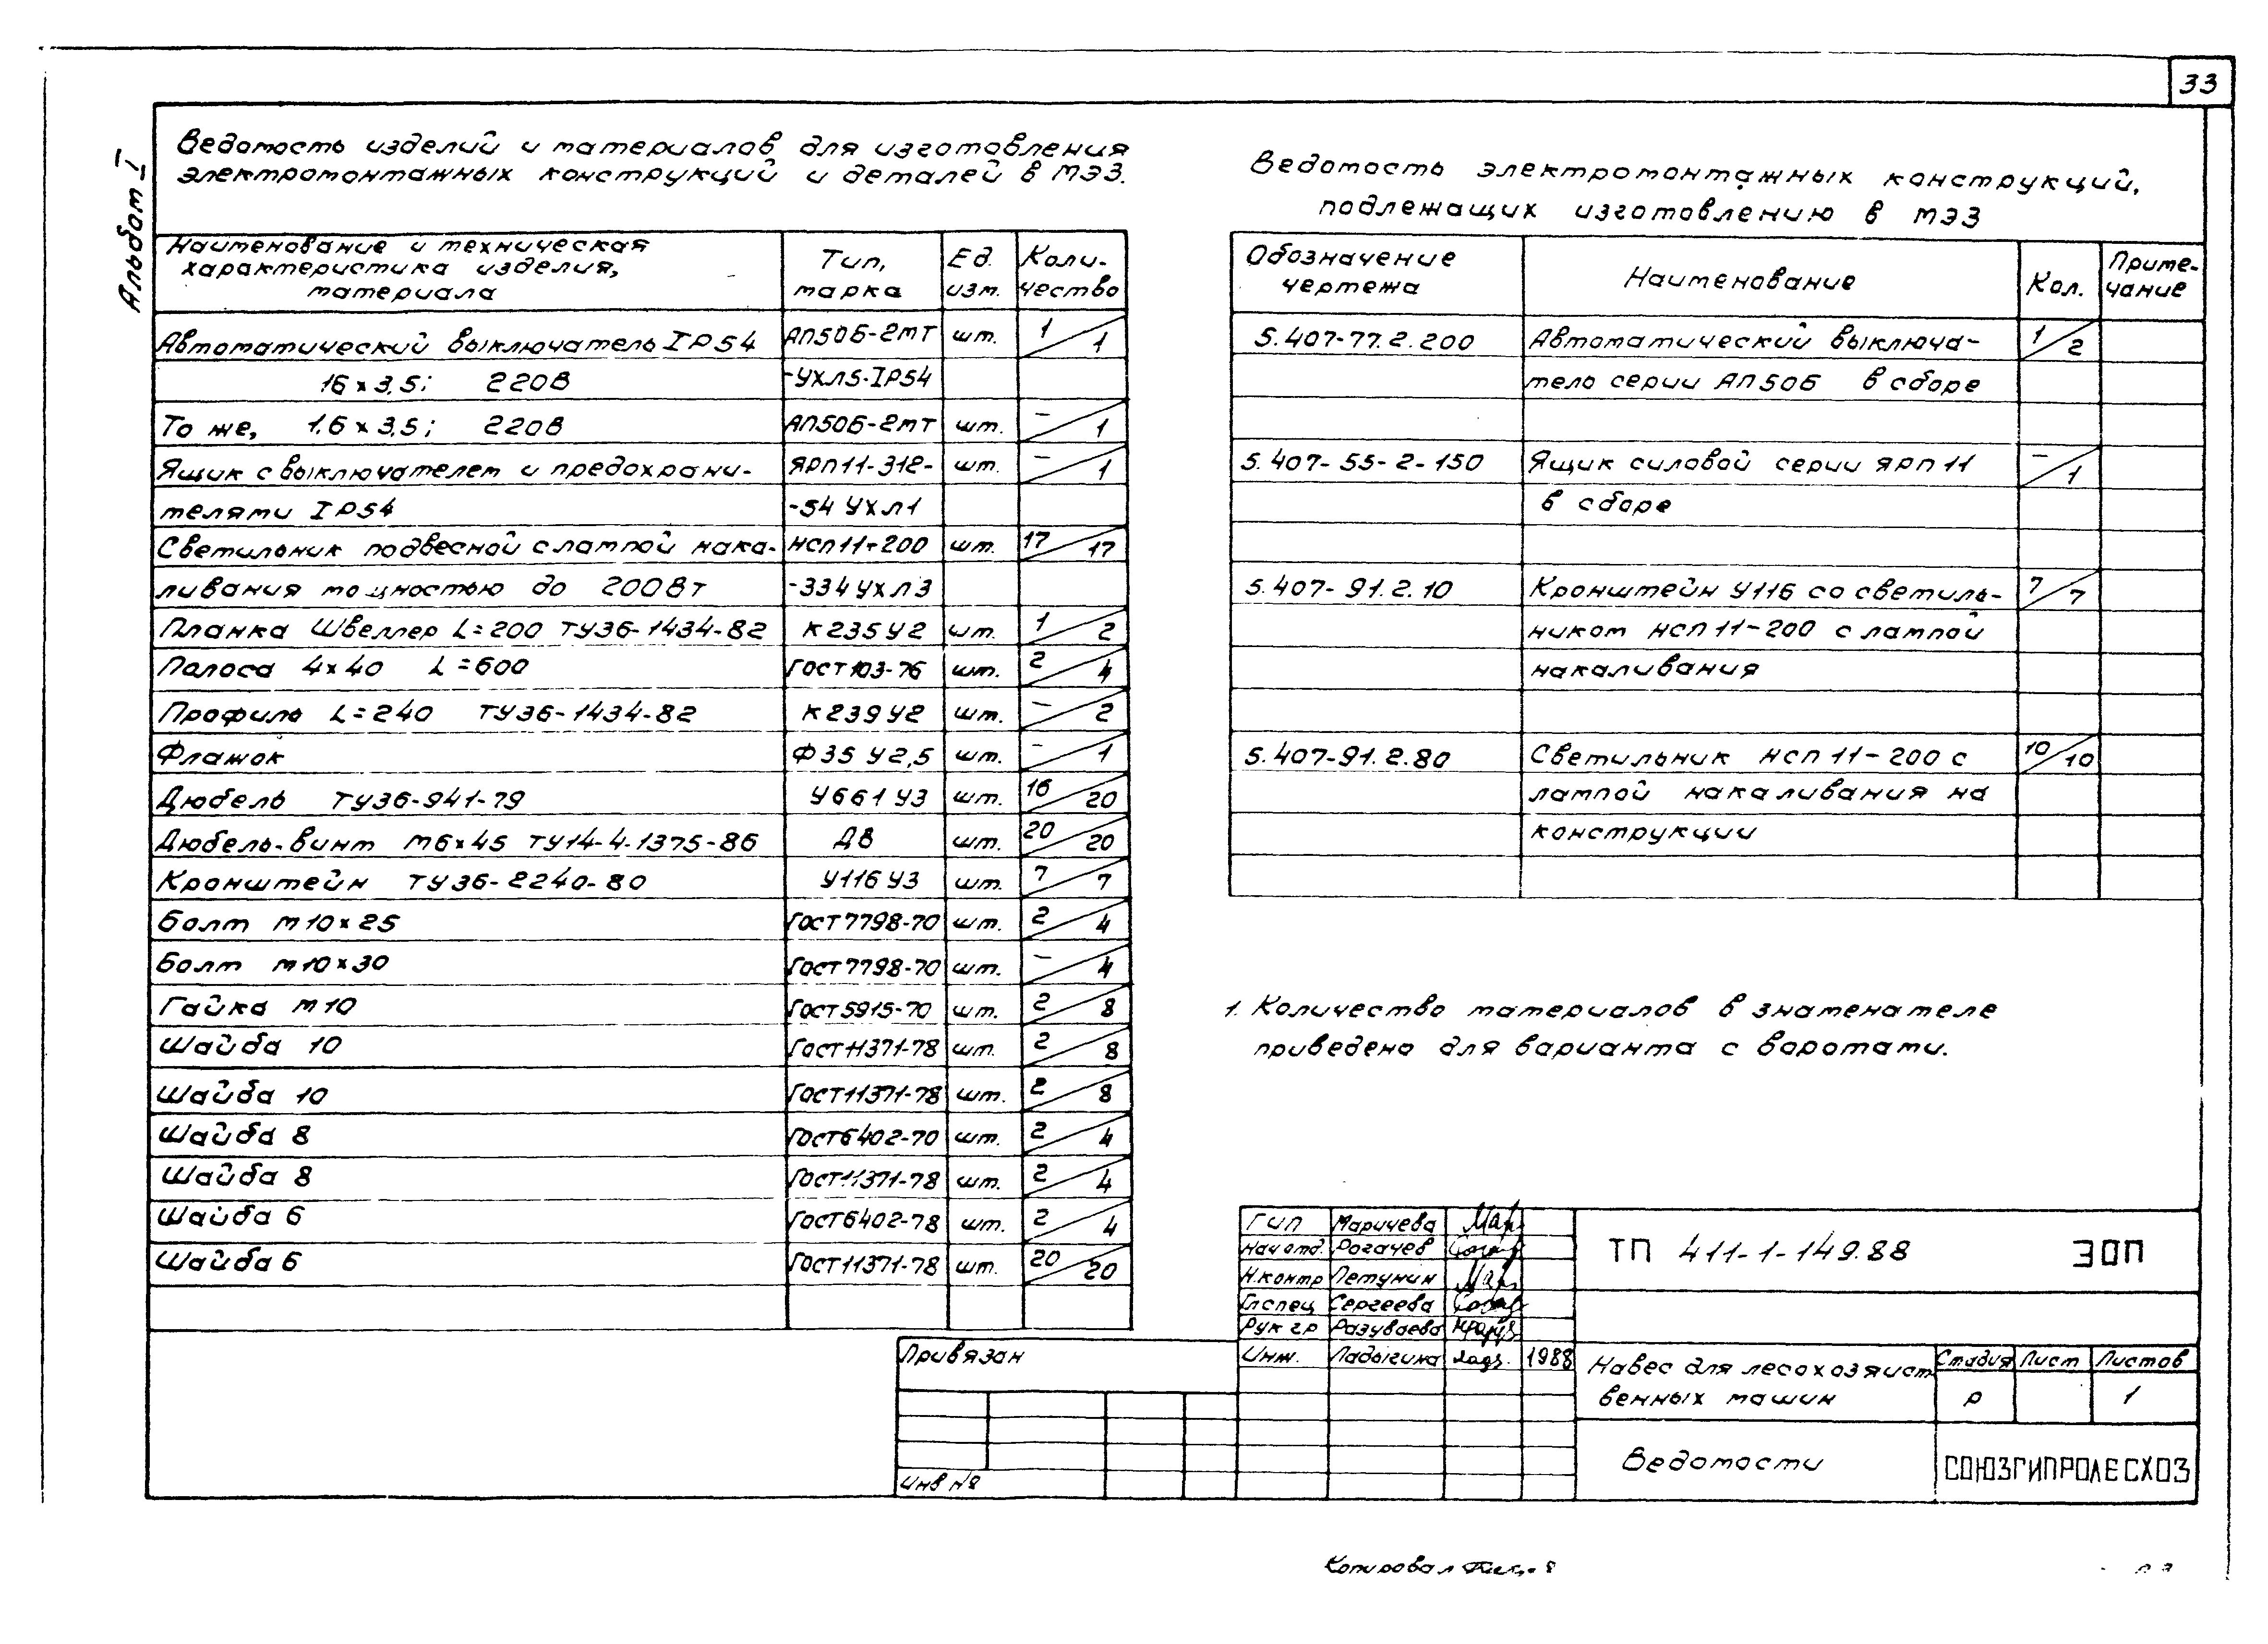 33
Альбом I
Ведомость изделий и материалов для изготовления
электромонтажных конструкций и деталей в МЭЗ.
Наименование и техническая характеристика изделия, материала Тип, марка Ед. изм. Количество
Автоматический выключатель IP54 АП50Б-2МТ шт. 1/1
16×3,5; 220В -УХЛ5-IP54
То же, 1,6×3,5; 220В АП50Б-2МТ шт. -/1
Ящик с выключателем и предохрани- ЯРП11-312- шт. -/1
телями IP54 -54 УХЛ1
Светильник подвесной с лампой нака- НСП11-200 шт. 17/17
ливания мощностью до 200Вт -334 УХЛ3
Планка Швеллер L=200 ТУ36-1434-82 К235У2 шт. 1/2
Полоса 4×40 L=600 ГОСТ 103-76 шт. 2/4
Профиль L=240 ТУ36-1434-82 К239У2 шт. -/2
Флажок Ф35 У2,5 шт. -/1
Дюбель ТУ36-941-79 У661 У3 шт. 16/20
Дюбель-винт М6×45 ТУ14-4-1375-86 ДВ шт. 20/20
Кронштейн ТУ36-2240-80 У116 У3 шт. 7/7
Болт М10×25 ГОСТ 7798-70 шт. 2/4
Болт М10×30 ГОСТ 7798-70 шт. -/4
Гайка М10 ГОСТ 5915-70 шт. 2/8
Шайба 10 ГОСТ 11371-78 шт. 2/8
Шайба 10 ГОСТ 11371-78 шт. 2/8
Шайба 8 ГОСТ 6402-70 шт. 2/4
Шайба 8 ГОСТ 11371-78 шт. 2/4
Шайба 6 ГОСТ 6402-78 шт. 2/4
Шайба 6 ГОСТ 11371-78 шт. 20/20
Ведомость электромонтажных конструкций,
подлежащих изготовлению в МЭЗ
Обозначение чертежа Наименование Кол. Примечание
5.407-77.2.200 Автоматический выключа- 1/2
тель серии АП50Б в сборе
5.407-55-2-150 Ящик силовой серии ЯРП11 -/1
в сборе
5.407-91.2.10 Кронштейн У116 со светиль- 7/7
ником НСП11-200 с лампой
накаливания
5.407-91.2.80 Светильник НСП11-200 с 10/10
лампой накаливания на
конструкции
1. Количество материалов в знаменателе
приведено для варианта с воротами.
ГИП Маричева
Нач отд. Рогачев
Н.контр Петунин
Гл спец Сергеева
Рук гр Разуваева
Инж. Ладыгина 1988
ТП 411-1-149.88 ЭОП
Навес для лесохозяйст
венных машин
Стадия Лист Листов
Р 1
Ведомости
СОЮЗГИПРОЛЕСХОЗ
Привязан
Инв №
Копировал